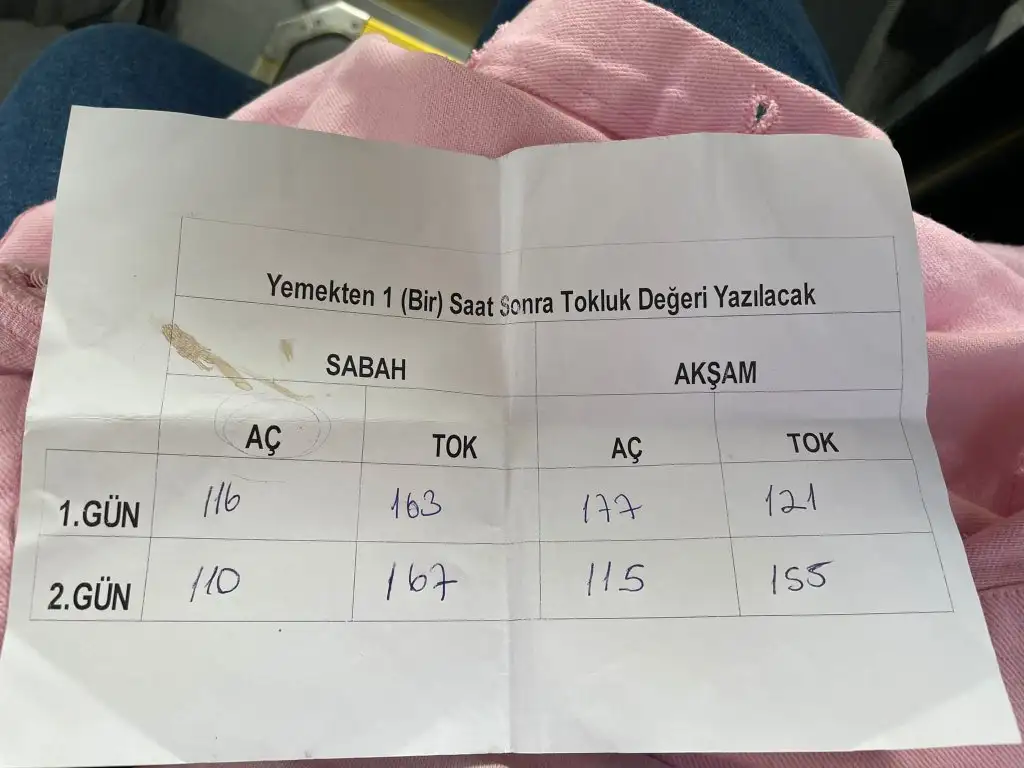 Yemekten 1 (Bir) Saat Sonra Tokluk Değeri Yazılacak
SABAH AKŞAM
AÇ TOK AÇ TOK
1.GÜN 116 163 177 121
2.GÜN 110 167 115 155